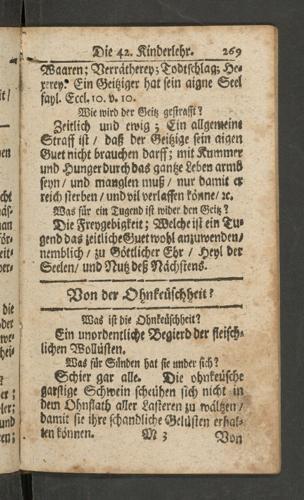 Die 42. Kinderlehr. 269
Waaren; Verrätherey; Todtschlag; He-
xerey. Ein Geitziger hat sein aigne Seel
fayl. Eccl. 10. v. 10.
Wie wird der Geitz gestrafft?
Zeitlich und ewig; Ein allgemeine
Straff ist / daß der Geitzige sein aigen
Guet nicht brauchen darff; mit Kummer
und Hunger durch das gantze Leben armb
seyn / und manglen muß / nur damit er
reich sterben / und vil verlassen könne / ꝛc.
Was für ein Tugend ist wider den Geitz?
Die Freygebigkeit; Welche ist ein Tu-
gend das zeitliche Guet wohl anzuwenden /
nemblich / zu Göttlicher Ehr / Heyl der
Seelen / und Nutz deß Nächstens.
Von der Ohnkeüschheit?
Was ist die Ohnkeüschheit?
Ein unordentliche Begierd der fleisch-
lichen Wollüsten.
Was für Sünden hat sie under sich?
Schier gar alle. Die ohnkeüsche
garstige Schwein scheühen sich nicht in
dem Ohnflath aller Lasteren zu wältzen /
damit sie ihre schandliche Gelüsten erhal-
ten können. M 3 Von